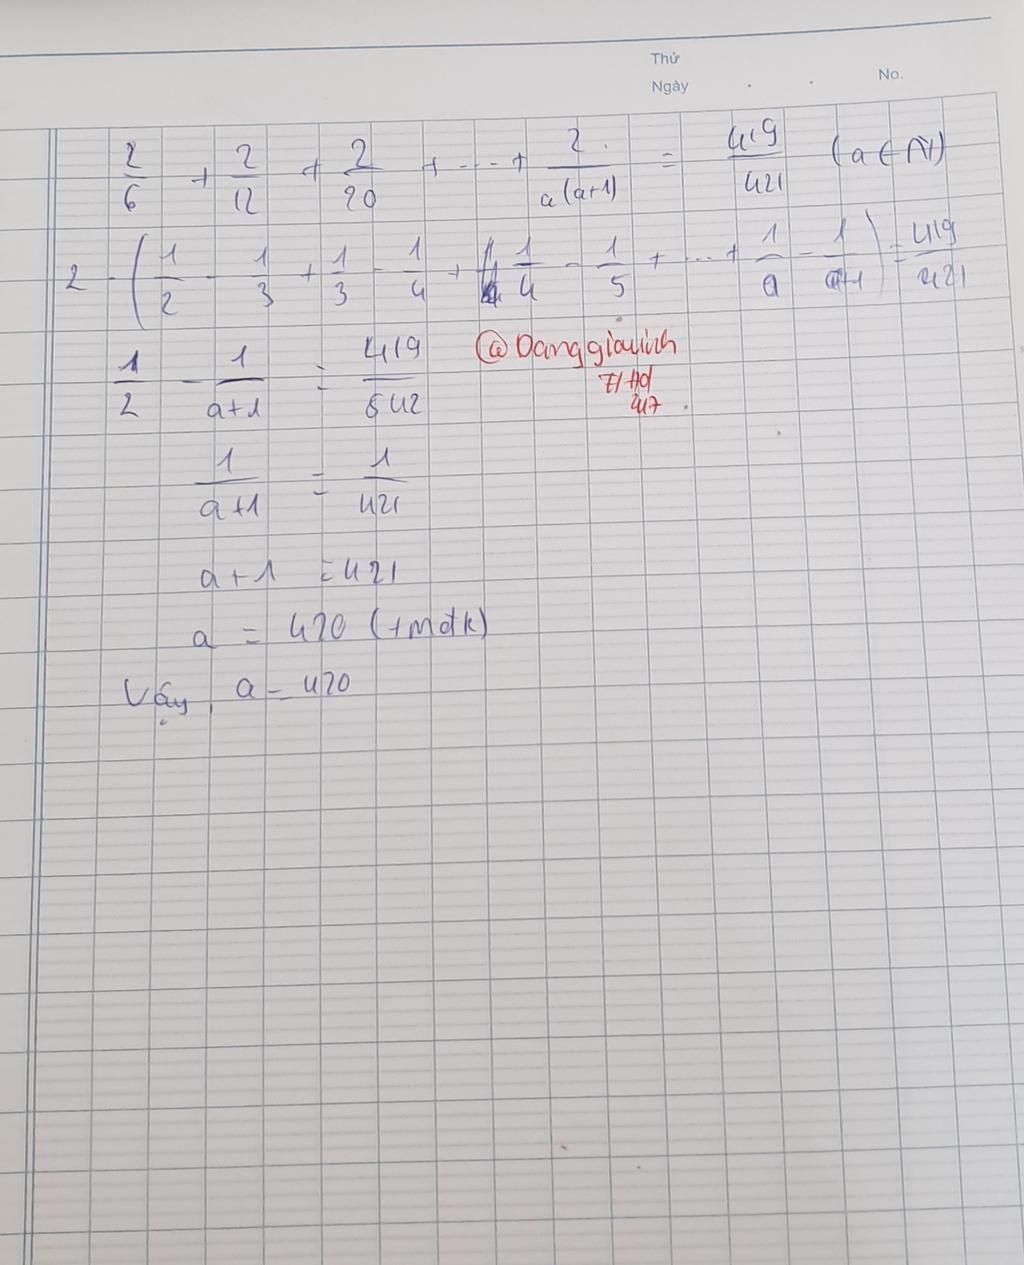 Thứ
Ngày . . No.
2/6 + 2/12 + 2/20 + ... + 2/a(a+1) = 419/421 (a ∈ N)
2 · (1/2 - 1/3 + 1/3 - 1/4 + 1/4 - 1/5 + ... + 1/a - 1/a+1) = 419/421
1/2 - 1/a+1 = 419/842
@Danggiauinh
1/a+1 = 1/421
a+1 = 421
a = 420 (+mđk)
Vậy, a = 420